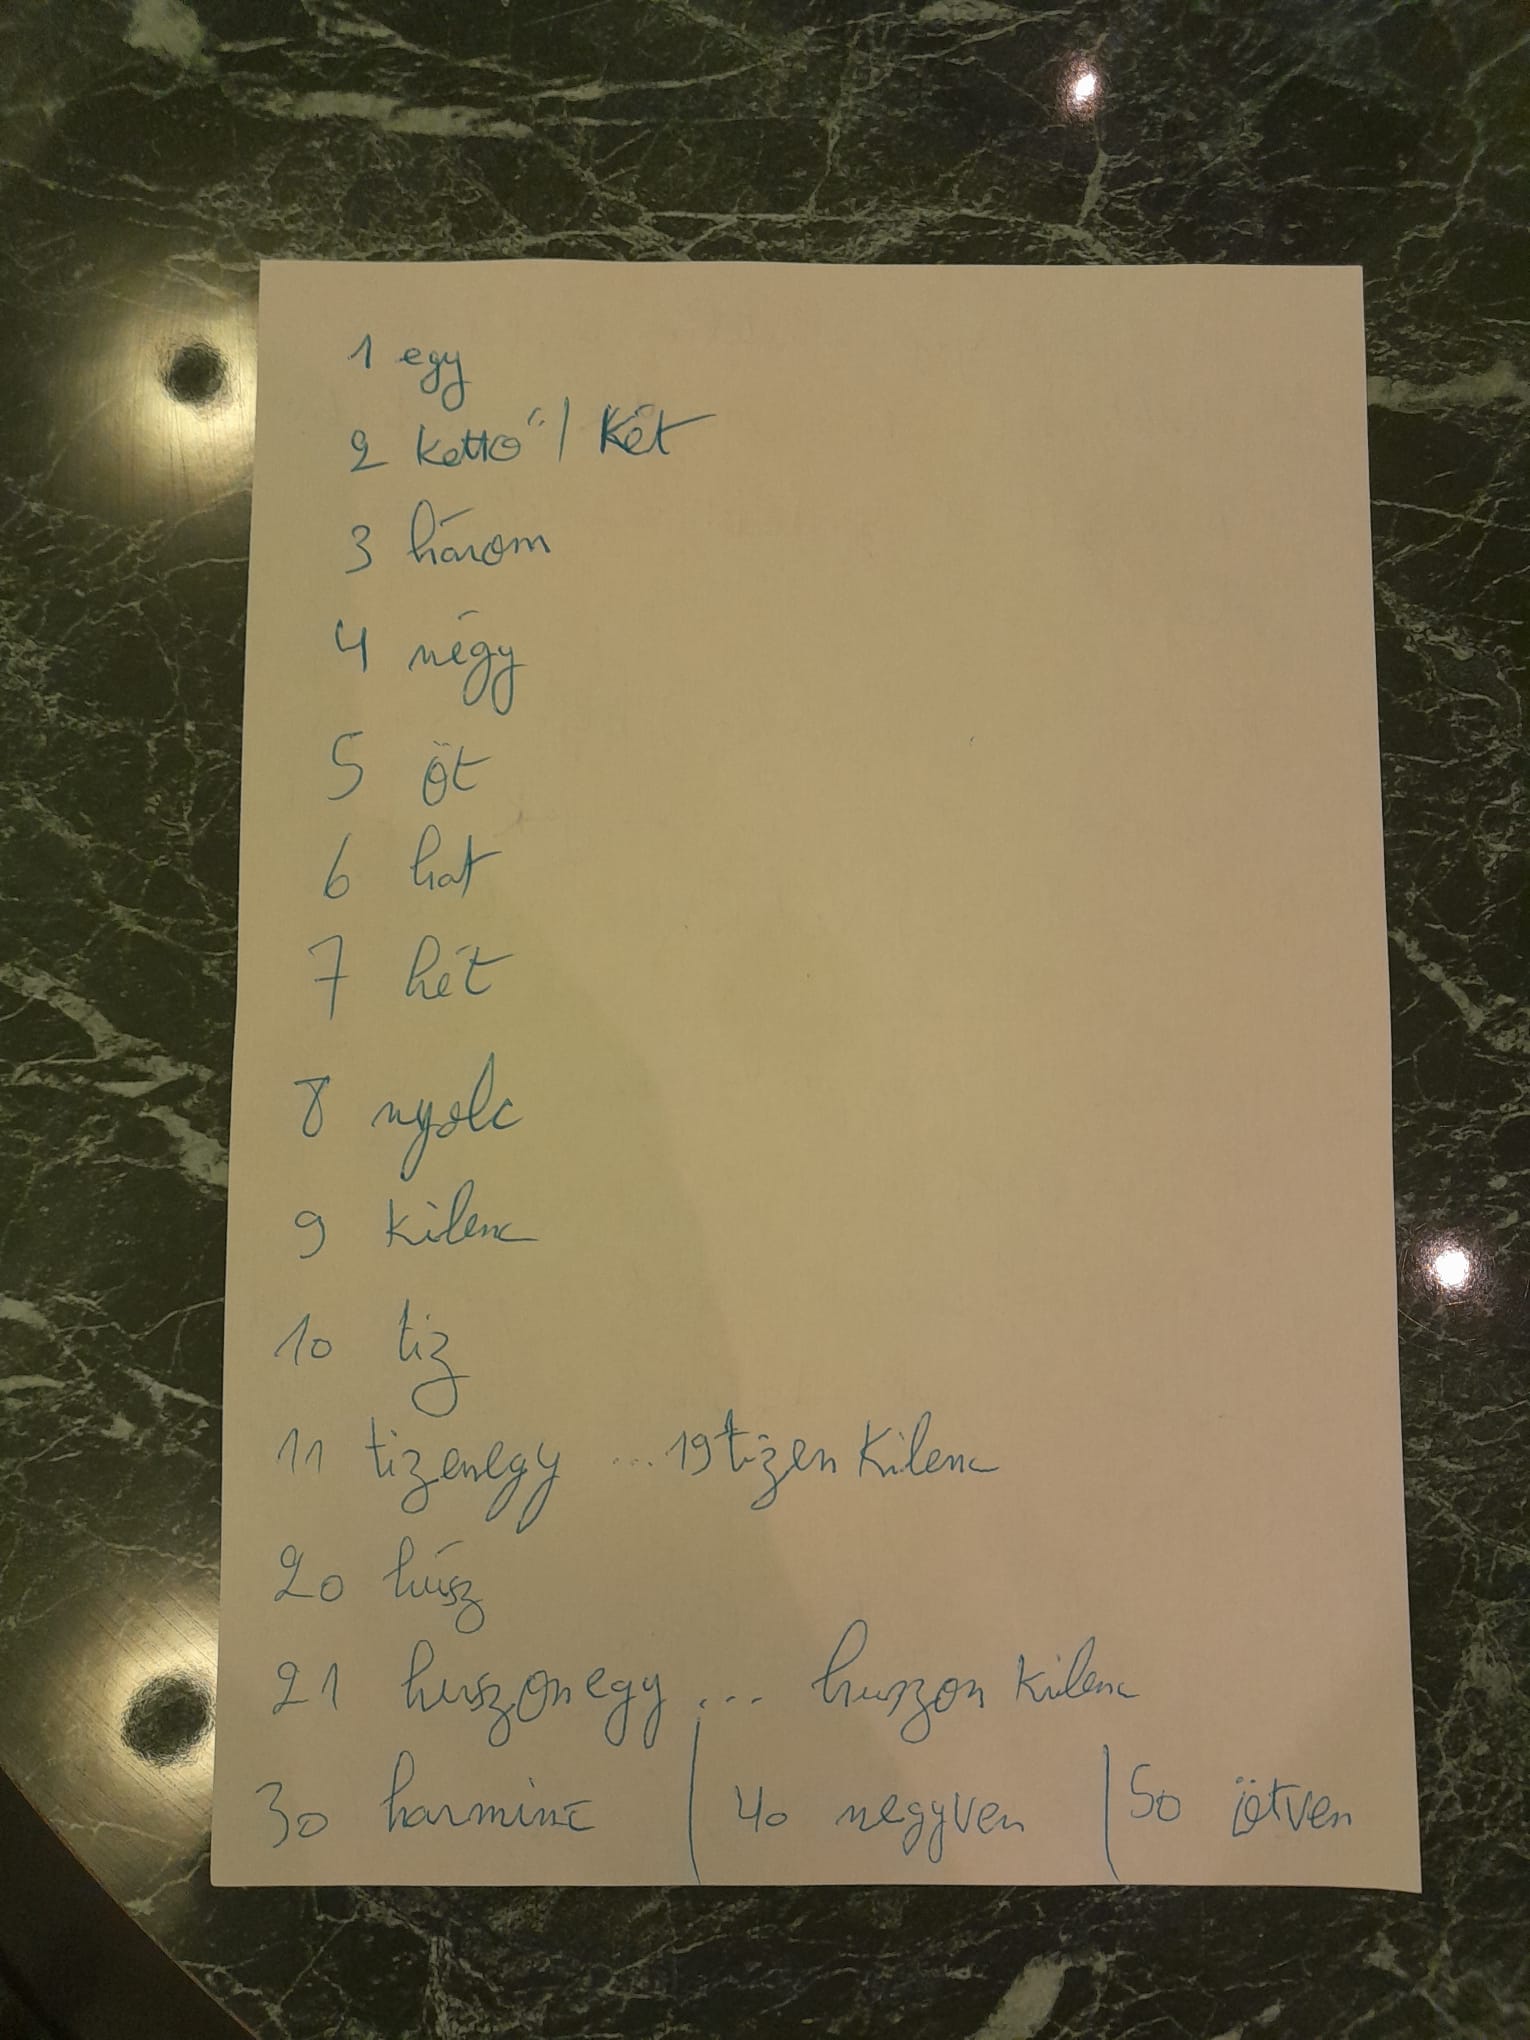 1 egy
2 kettő / Két
3 három
4 négy
5 öt
6 hat
7 hét
8 nyolc
9 kilenc
10 tiz
11 tizenegy ... 19 tizen kilenc
20 húsz
21 huszonegy ... huszon kilenc
30 harminc | 40 negyven | 50 ötven